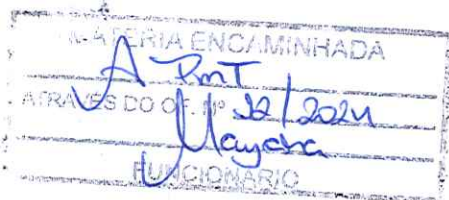 MATÉRIA ENCAMINHADA
A PMT
ATRAVÉS DO OF. Nº 12/2024
Mayara
FUNCIONÁRIO